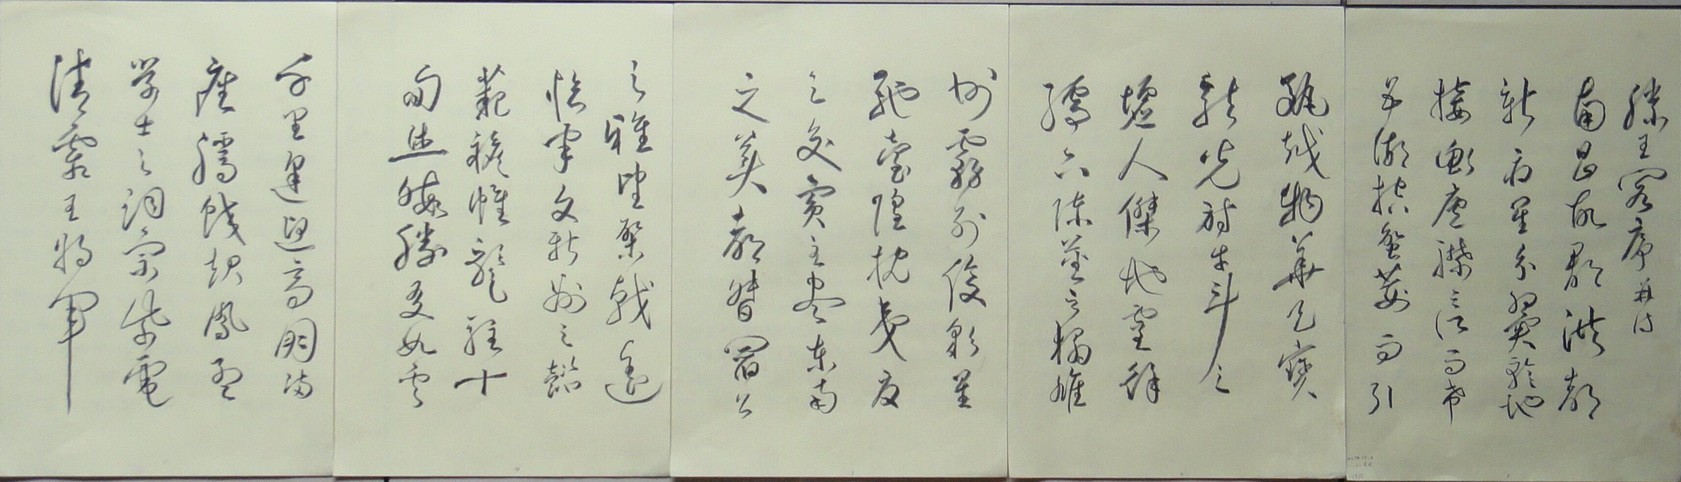 滕王閣序并詩
南昌故郡洪都
新府星分翼軫地
接衡廬襟三江而帶
五湖控蠻荊而引
甌越物華天寶
龍光射牛斗之
墟人傑地靈徐
孺下陳蕃之榻雄
州霧列俊彩星
馳臺隍枕夷夏
之交賓主盡東南
之美都督閻公
之雅望棨戟遙
臨宇文新州之懿
範襜帷暫駐十
旬休暇勝友如雲
千里逢迎高朋滿
座騰蛟起鳳孟
学士之詞宗紫電
清霜王將軍